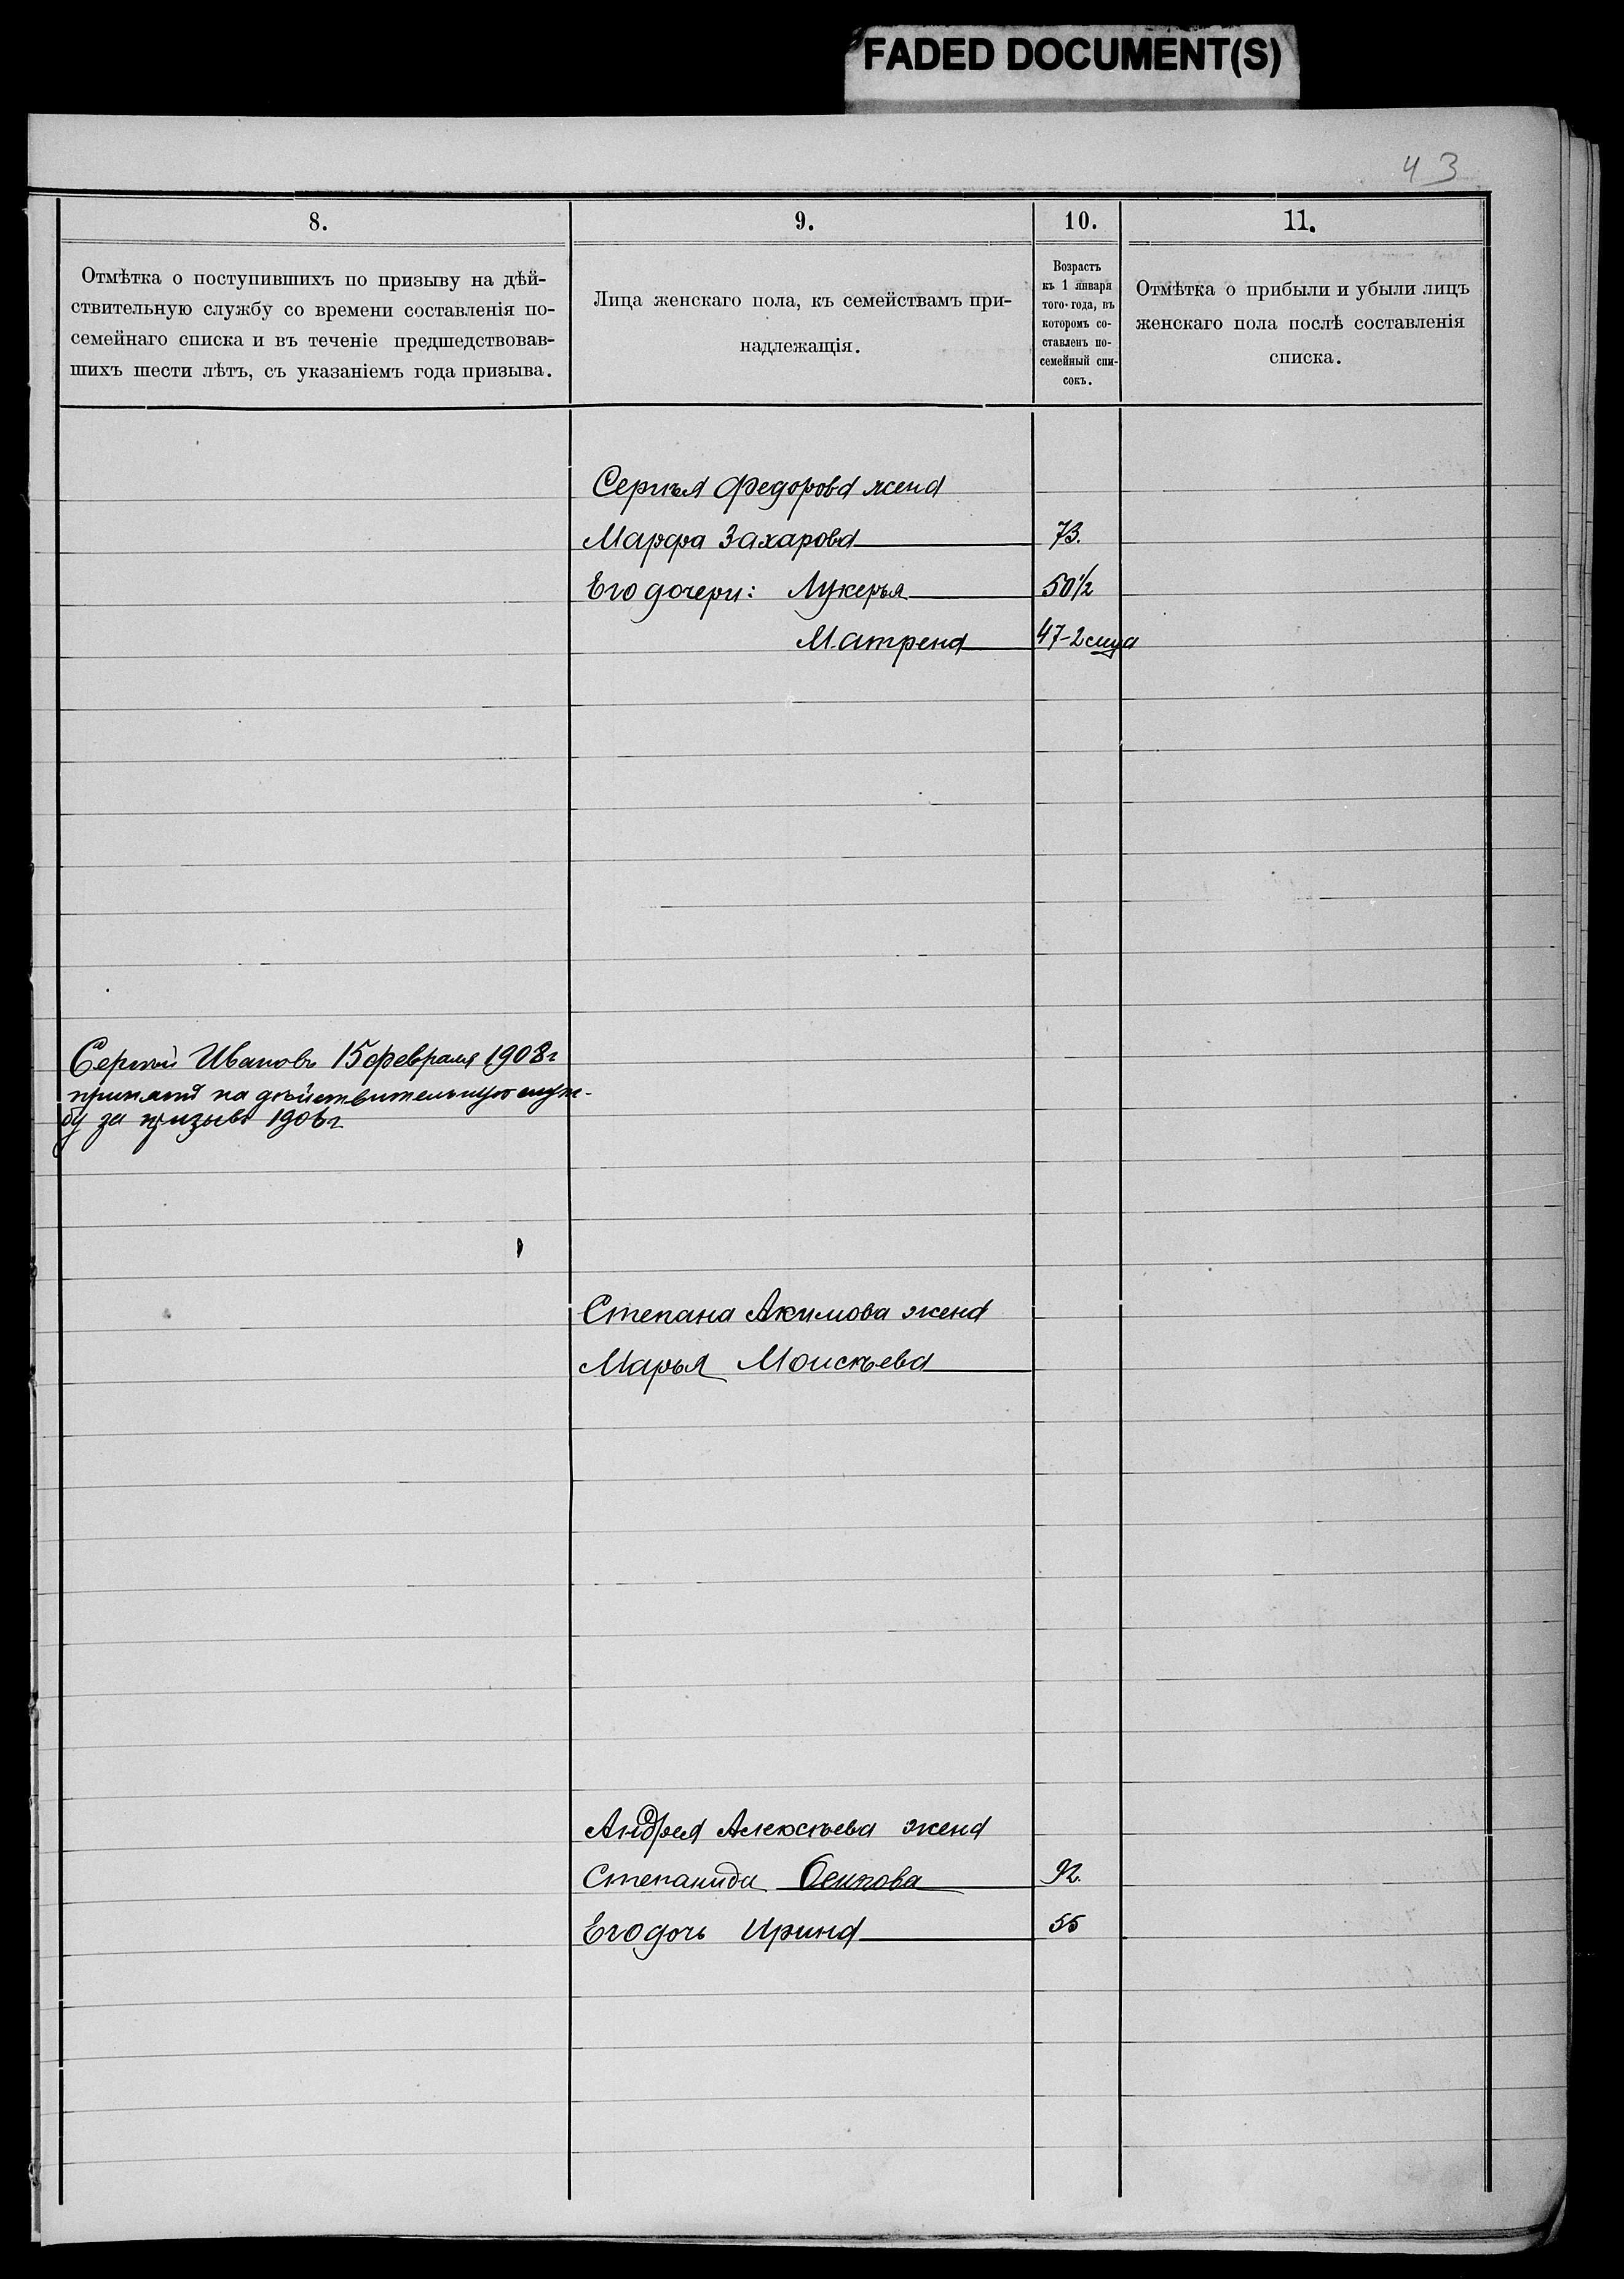 FADED DOCUMENT(S)
43
8.
9.
10.
11.
Отмѣтка о поступившихъ по призыву на дѣй-
ствительную службу со времени составленія по-
семейнаго списка и въ теченіе предшедствовав-
шихъ шести лѣтъ, съ указаніемъ года призыва.
Лица женскаго пола, къ семействамъ при-
надлежащія.
Возрастъ
къ 1 января
того-года, въ
которомъ со-
ставленъ по-
семейный спи-
сокъ.
Отмѣтка о прибыли и убыли лицъ
женскаго пола послѣ составленія
списка.
Сергѣя Федорова жена
Марфа Захарова 73.
Его дочери: Лукерья 50½
Матрена 47-2 мца
Сергѣй Ивановъ 15 февраля 1908 г
принятъ на дѣйствительную служ-
бу за призывъ 1906 г
Степана Акимова жена
Марья Моисѣева
Андрея Алексѣева жена
Степанида Осипова 92.
Его дочь Ирина 55